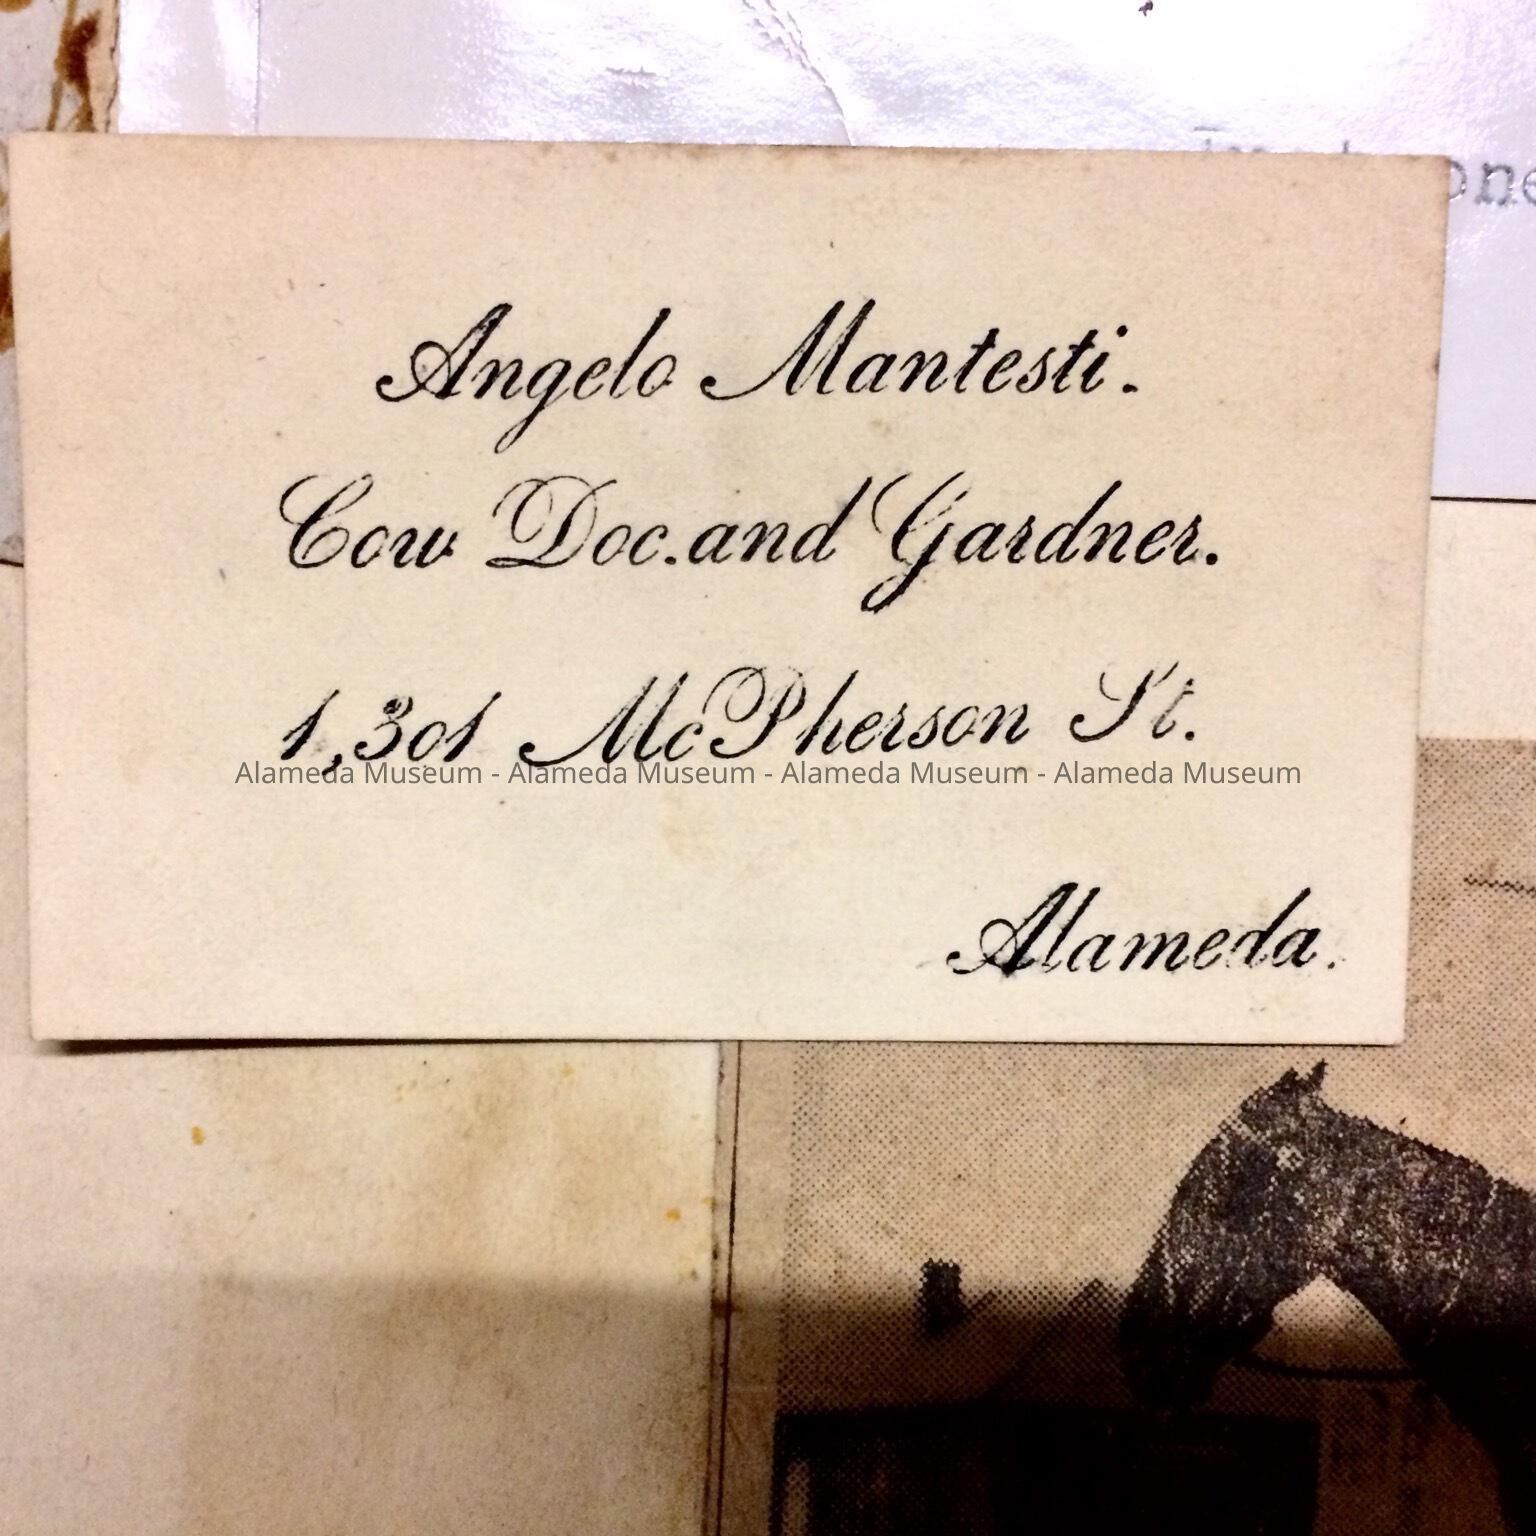 one
Angelo Mantesti.
Cow Doc. and Gardner.
1,301 McPherson St.
Alameda Museum - Alameda Museum - Alameda Museum - Alameda Museum
Alameda.